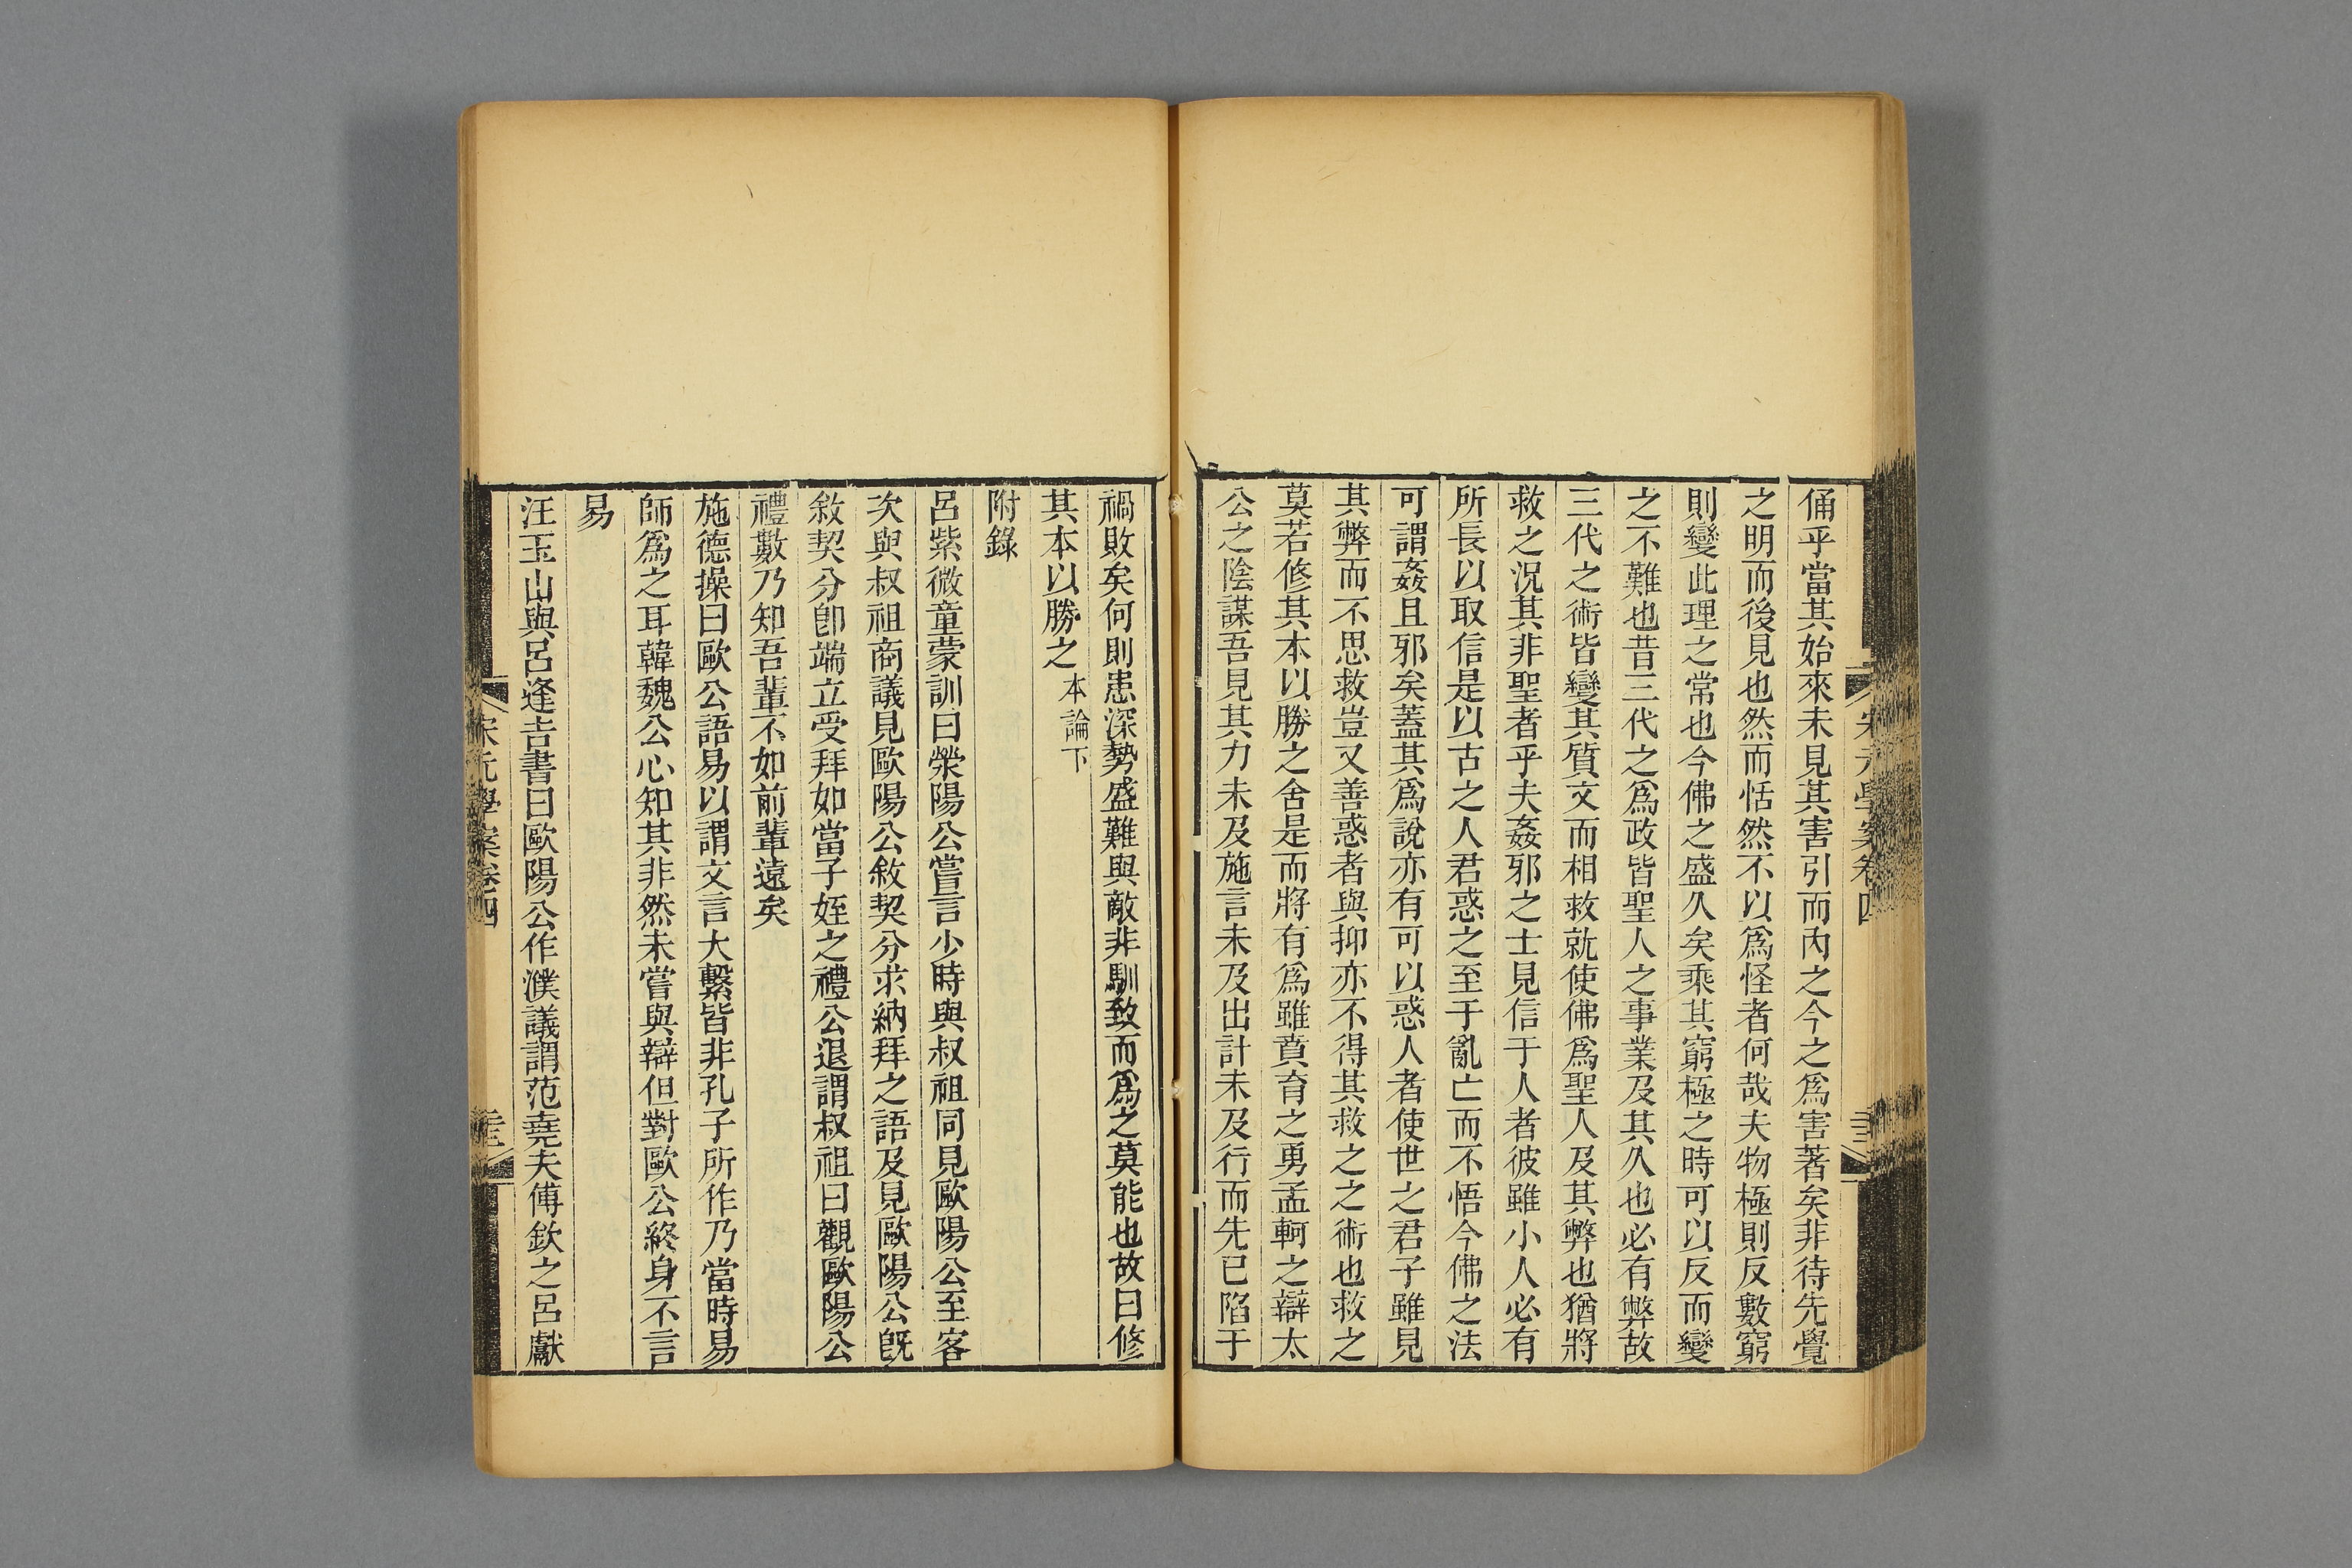 俑乎當其始來未見其害引而內之今之爲害著矣非待先覺
之明而後見也然而恬然不以爲怪者何哉夫物極則反數窮
則變此理之常也今佛之盛久矣乘其窮極之時可以反而變
之不難也昔三代之爲政皆聖人之事業及其久也必有弊故
三代之術皆變其質文而相救就使佛爲聖人及其弊也猶將
救之況其非聖者乎夫姦邪之士見信于人者彼雖小人必有
所長以取信是以古之人君惑之至于亂亡而不悟今佛之法
可謂姦且邪矣蓋其爲說亦有可以惑人者使世之君子雖見
其弊而不思救豈又善惑者與抑亦不得其救之之術也救之
莫若修其本以勝之舍是而將有爲雖賁育之勇孟軻之辯太
公之陰謀吾見其力未及施言未及出計未及行而先已陷于
宋元學案卷四
禍敗矣何則患深勢盛難與敵非馴致而爲之莫能也故曰修
其本以勝之本論下
附錄
呂紫微童蒙訓曰滎陽公嘗言少時與叔祖同見歐陽公至客
次與叔祖商議見歐陽公敘契分求納拜之語及見歐陽公旣
敘契分卽端立受拜如當子姪之禮公退謂叔祖曰觀歐陽公
禮數乃知吾輩不如前輩遠矣
施德操曰歐公語易以謂文言大繫皆非孔子所作乃當時易
師爲之耳韓魏公心知其非然未嘗與辯但對歐公終身不言
易
汪玉山與呂逢吉書曰歐陽公作濮議謂范堯夫傅欽之呂獻
宋元學案卷四